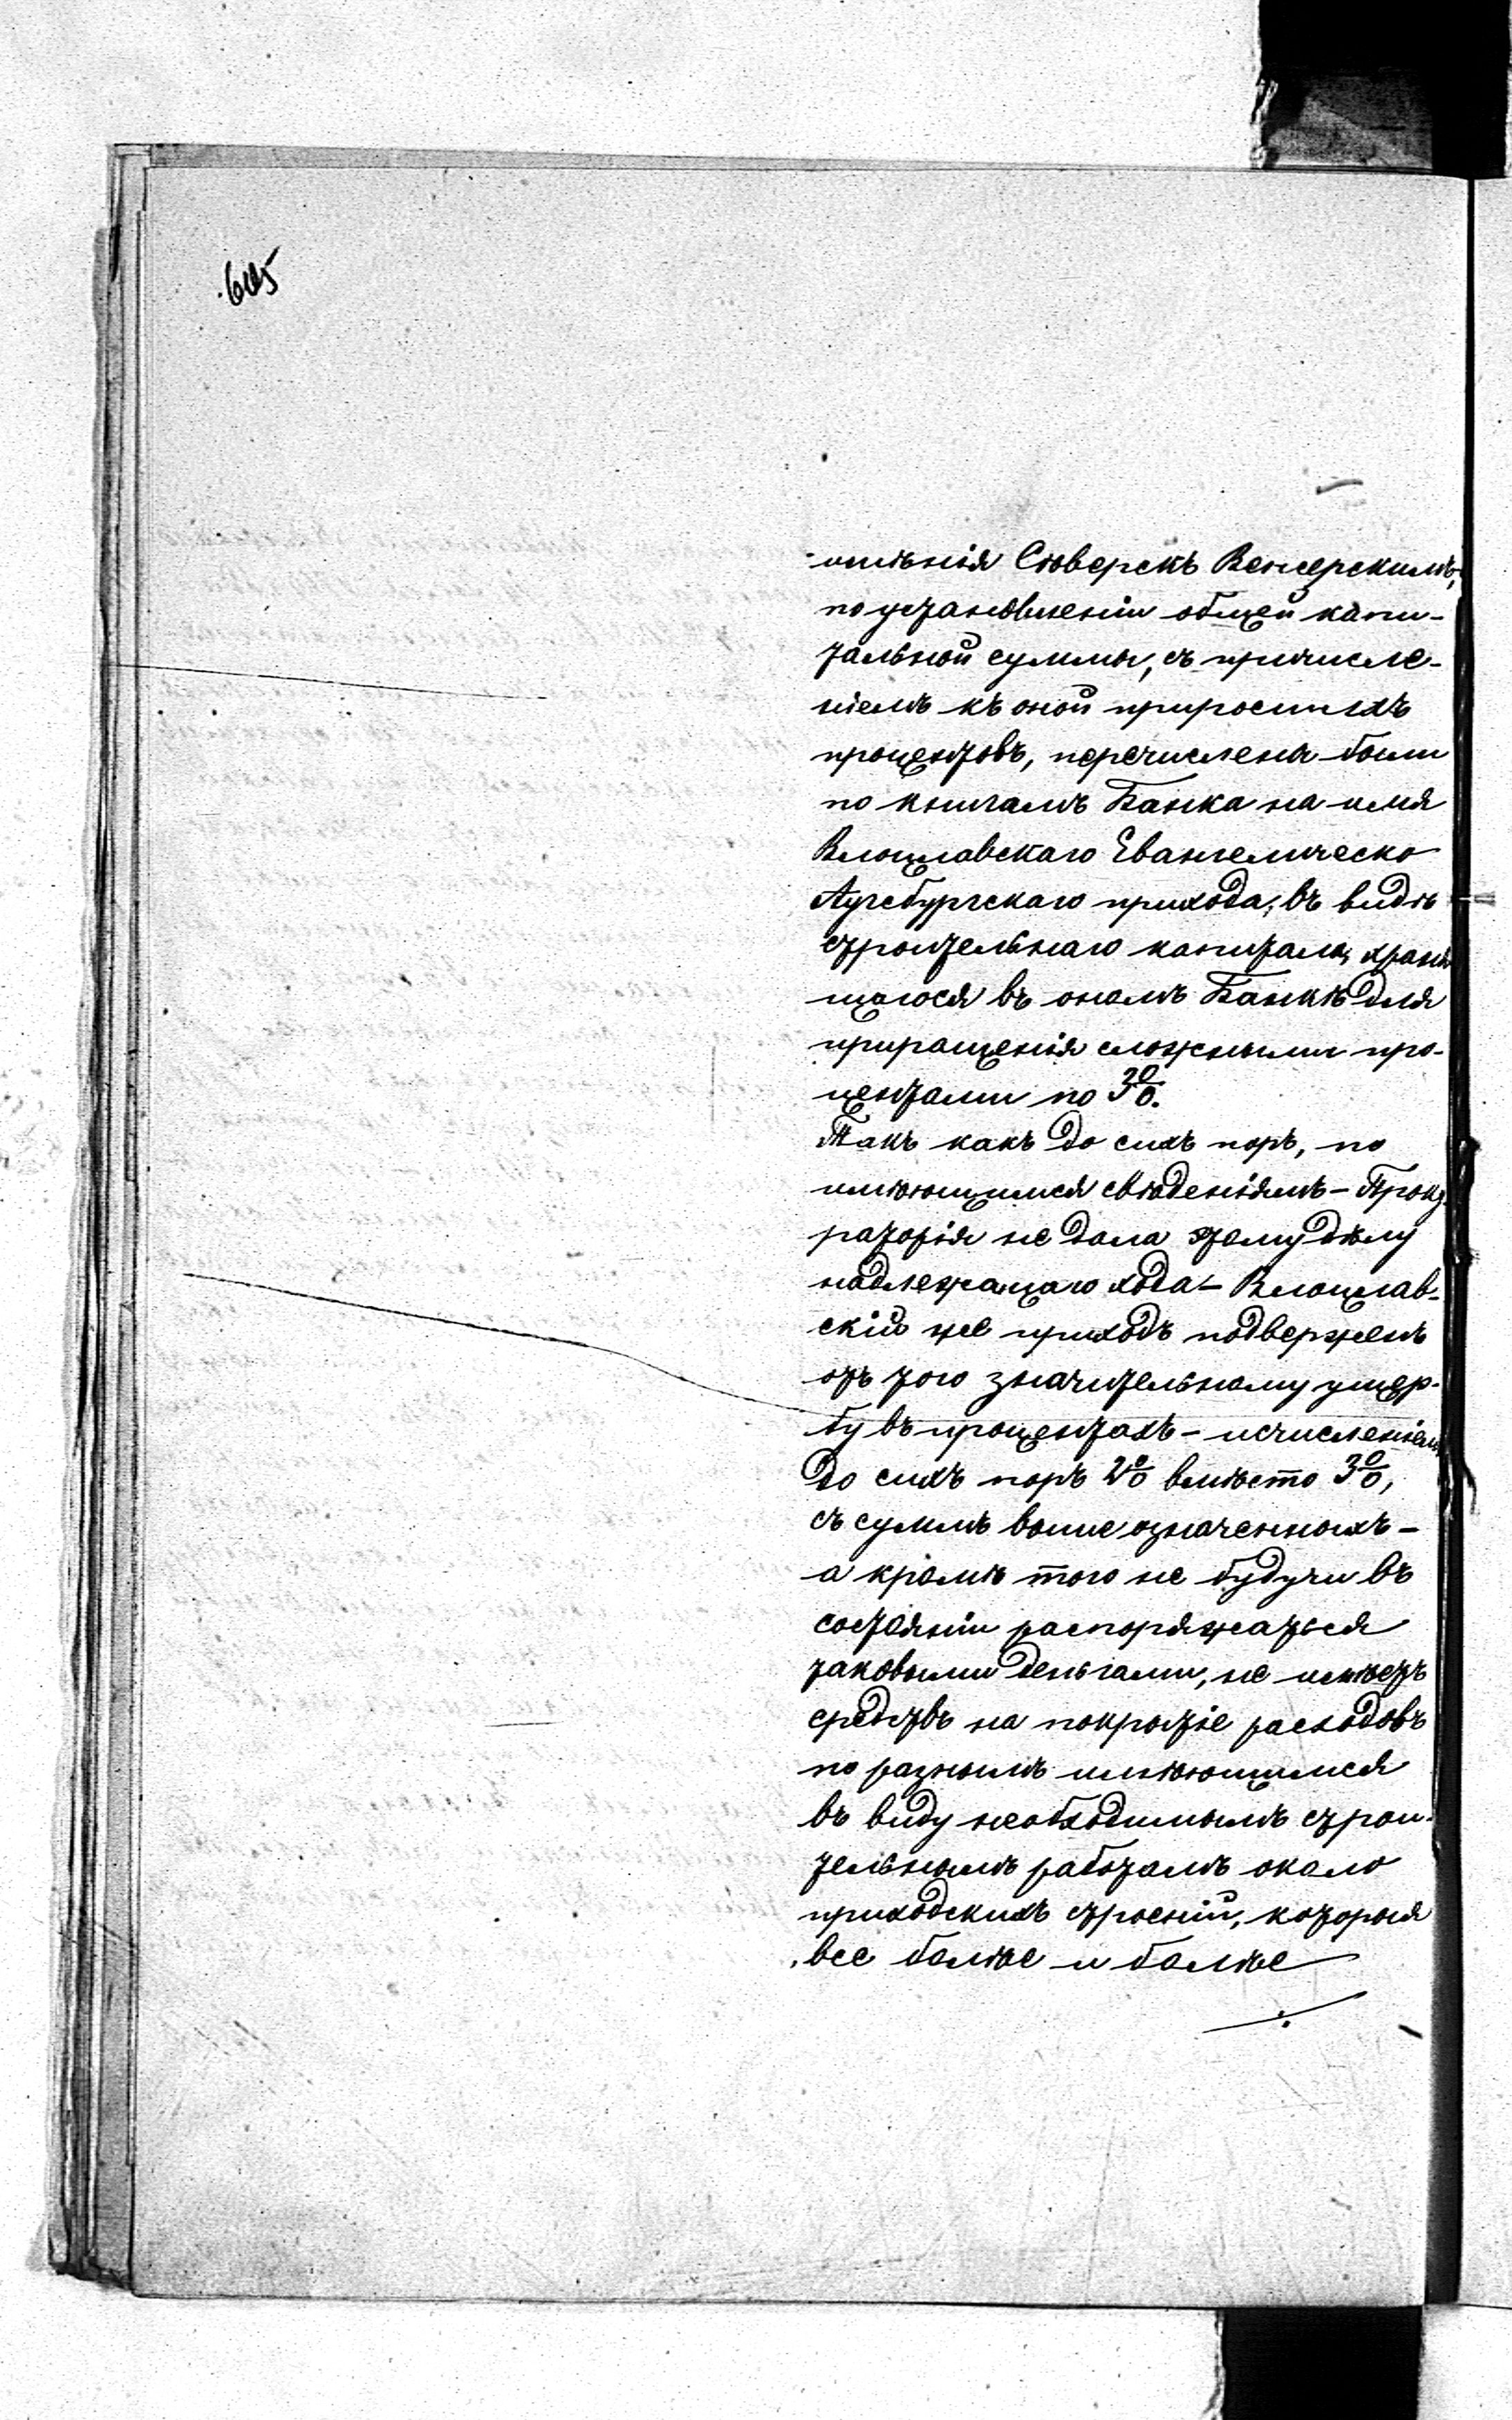 имѣнія Сѣверскъ Венгерскимъ,
по установленіи общей капи-
тальной суммы, съ причисле-
ніемъ къ оной приросшихъ
процентовъ, перечислена были
по книгамъ Банка на имя
Влоцлавскаго Евангелическо
Аугсбургскаго прихода, въ видѣ
строительнаго капитала, храня
щагося въ ономъ Банкѣ для
приращенія сложными про-
центами по 3%.
Такъ какъ до сихъ поръ, по
имѣющимся свѣденіямъ – Проку
раторія не дала этому дѣлу
надлежащаго хода – Влоцлав-
скій же приходъ подверженъ
отъ того значительному ущер-
бу въ процентахъ – исчисленіемъ
до сихъ поръ 2% вмѣсто 3%,
съ суммъ выше означенныхъ –
а кромѣ того не будучи въ
состояніи распоряжаться
таковыми деньгами, не имѣетъ
средствъ на покрытіе расходовъ
по разнымъ имѣющимся
въ виду необходимымъ строи-
тельнымъ работамъ около
приходскихъ строеній, которыя
все болѣе и болѣе